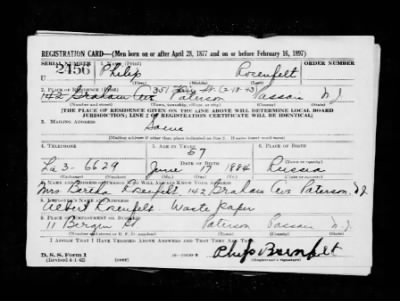 REGISTRATION CARD—(Men born on or after April 28, 1877 and on or before February 16, 1897)
SERIAL NUMBER 1. NAME (Print) ORDER NUMBER
U 2456 Philip Rosenfelt
(First) (Middle) (Last)
351 6-18-43
2. PLACE OF RESIDENCE (Print)
142 Graham Ave Paterson Passaic N J
(Number and street) (Town, township, village, or city) (County) (State)
[THE PLACE OF RESIDENCE GIVEN ON THE LINE ABOVE WILL DETERMINE LOCAL BOARD
JURISDICTION; LINE 2 OF REGISTRATION CERTIFICATE WILL BE IDENTICAL]
3. MAILING ADDRESS
Same
[Mailing address if other than place indicated on line 2. If same insert word same]
4. TELEPHONE 5. AGE IN YEARS 6. PLACE OF BIRTH
57
La 3-6629 June 17 1884 Russia
7. NAME AND ADDRESS OF PERSON WHO WILL ALWAYS KNOW YOUR ADDRESS
Mrs Bertha Rosenfelt 142 Graham Ave Paterson, N.J.
8. EMPLOYER'S NAME AND ADDRESS
Albert Rosenfelt Waste Paper
9. PLACE OF EMPLOYMENT OR BUSINESS
11 Bergen St Paterson Passaic N. J.
(Number and street or R. F. D. number) (Town) (County) (State)
I AFFIRM THAT I HAVE VERIFIED ABOVE ANSWERS AND THAT THEY ARE TRUE.
D. S. S. Form 1
(Revised 4-1-42) (Registrant's signature)